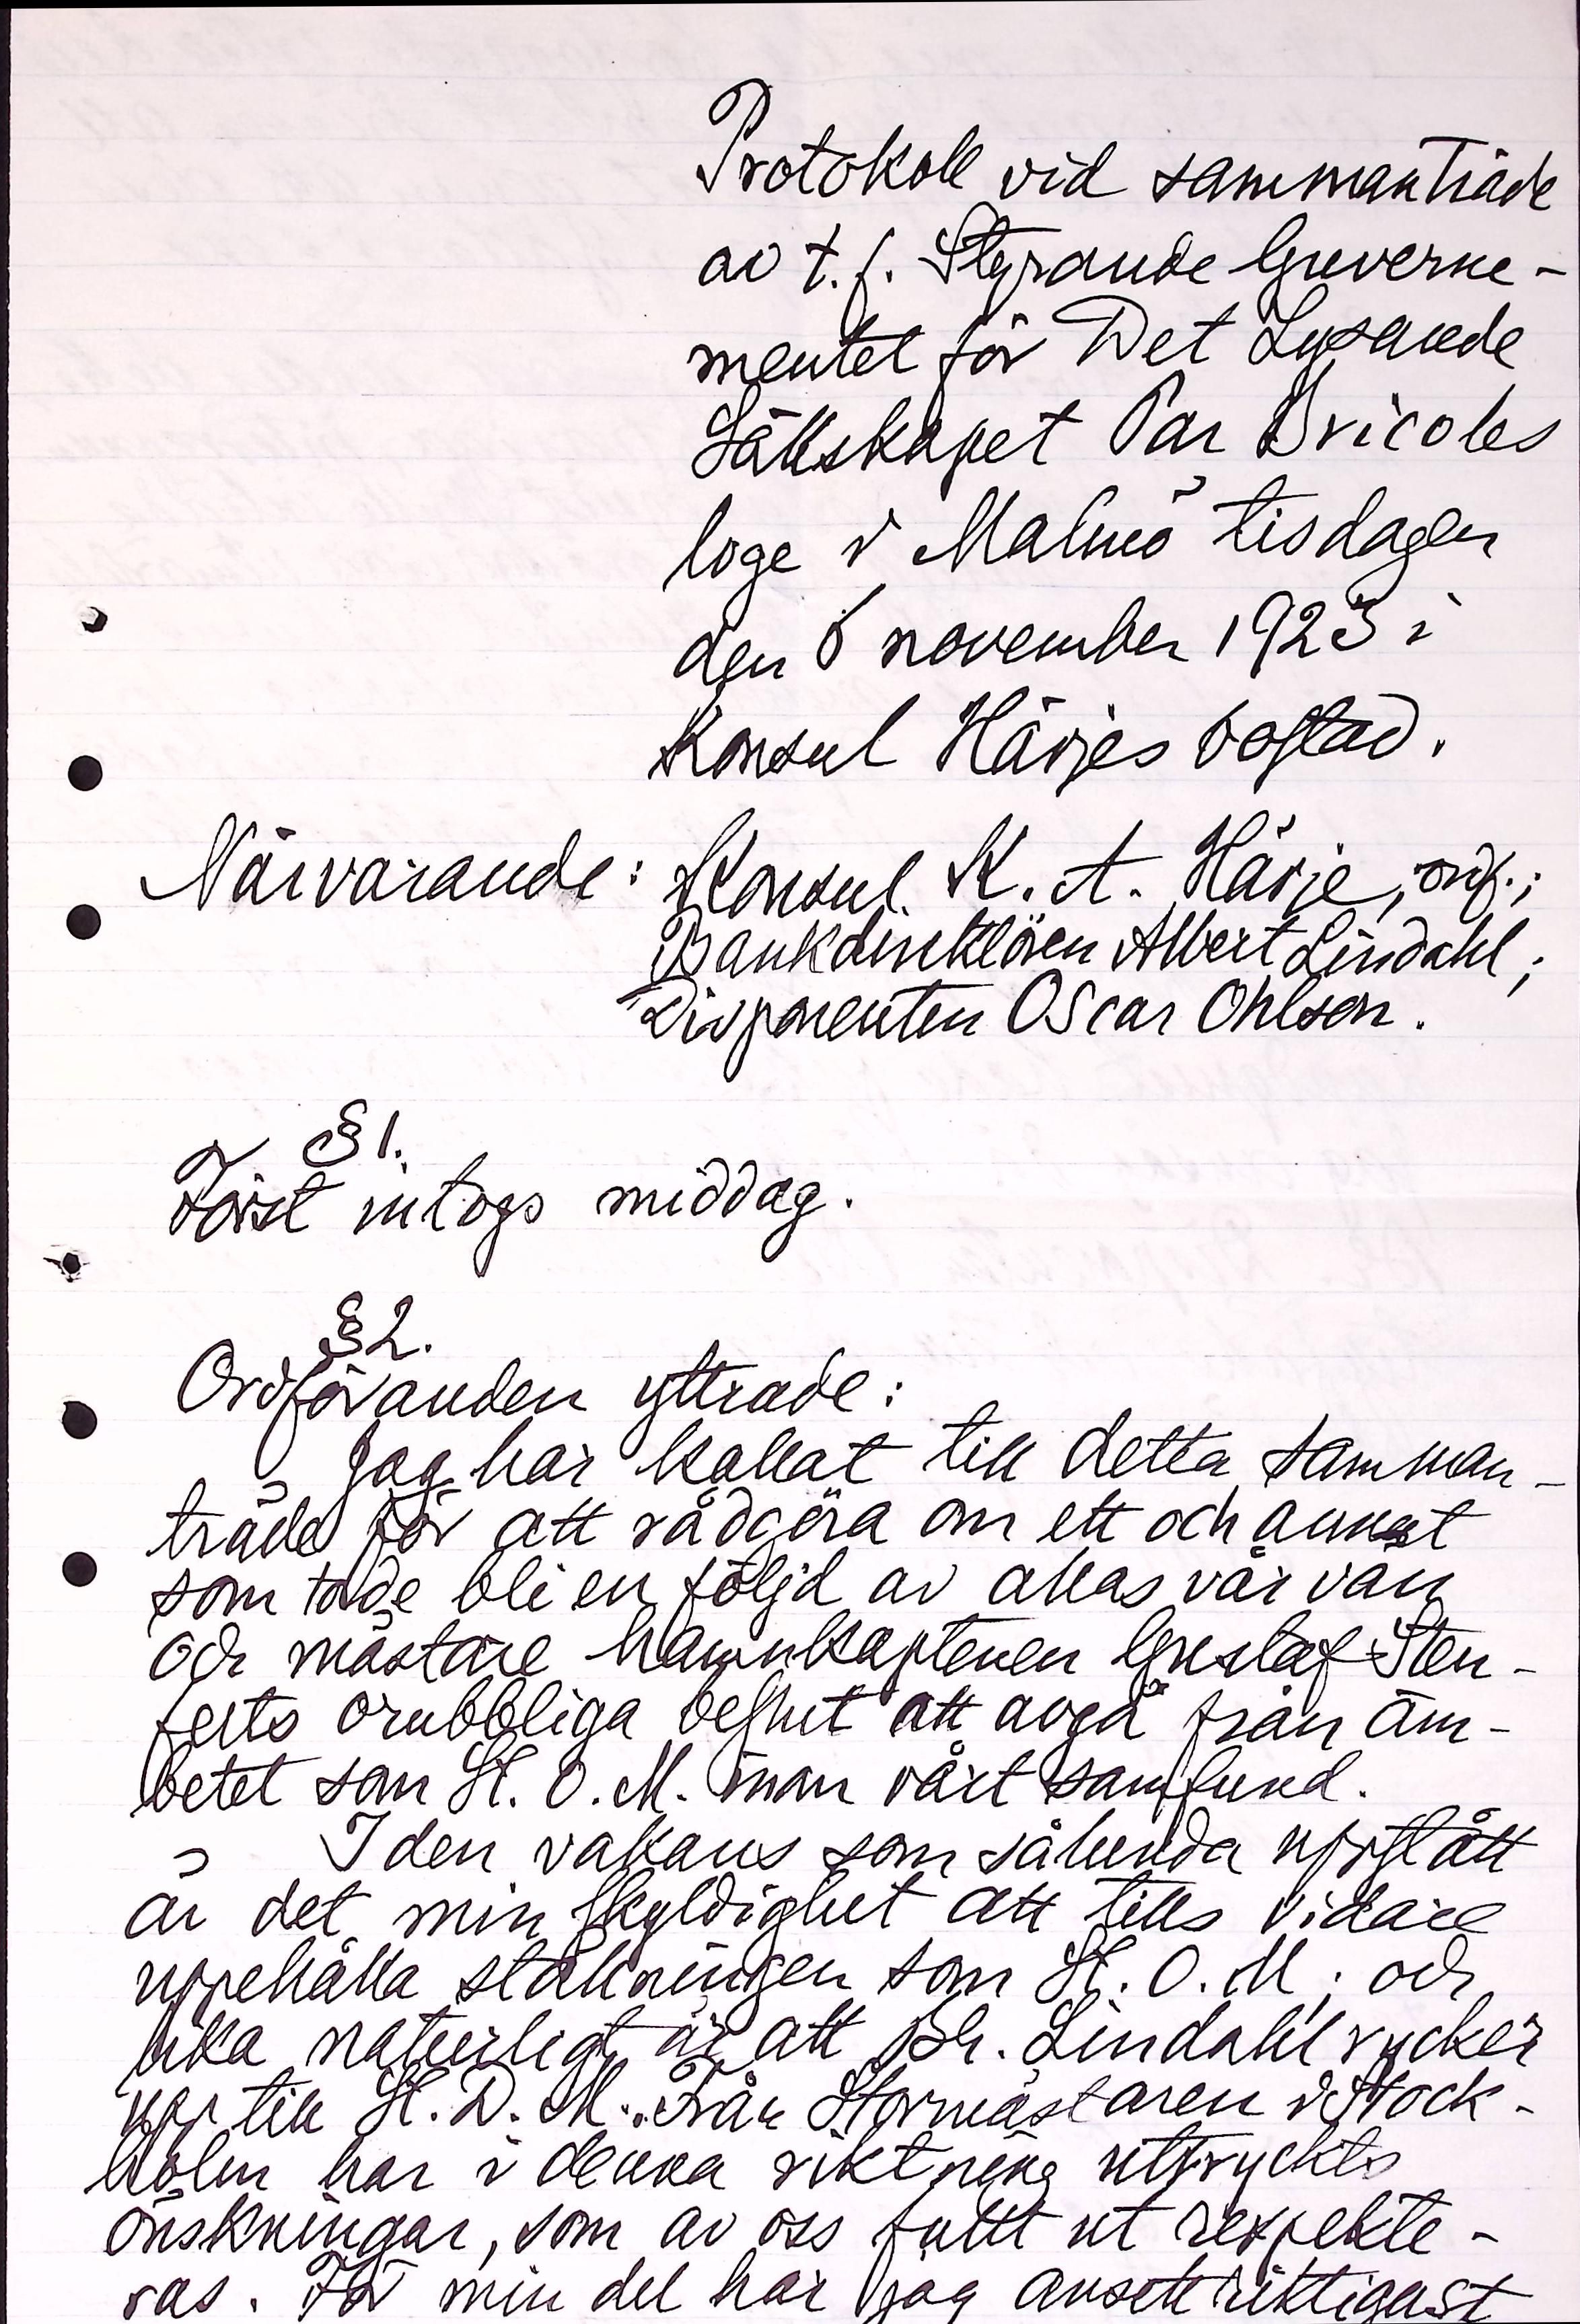 Protokoll vid sammanträde
av t.f. Styrande Guverne-
mentet för Det Lysande
Sällskapet Par Bricoles
loge i Malmö tisdagen
den 6 november 1923 i
Konsul Härjes bostad.
Närvarande: Konsul K. A. Härje, ordf.;
Bankdirektören Albert Lindahl;
Disponenten Oscar Ohlson.
§ 1.
Först intogs middag.
§ 2.
Ordföranden yttrade:
Jag har kallat till detta samman-
träde för att rådgöra om ett och annat
som torde bli en följd av allas vår vän
och mästare hamnkaptenen Gustaf Sten-
felts orubbliga beslut att avgå från äm-
betet som St. O. M. inom vårt samfund.
I den vakans som sålunda uppstått
är det min skyldighet att tills vidare
uppehålla ställningen som St. O. M. och
lika naturligt är att Br. Lindahl rycker
upp till St. D. M. Från Stormästaren i Stock-
holm har i denna riktning uttryckts
önskningar, som av oss fullt ut respekte-
ras. För min del har jag ansett riktigast